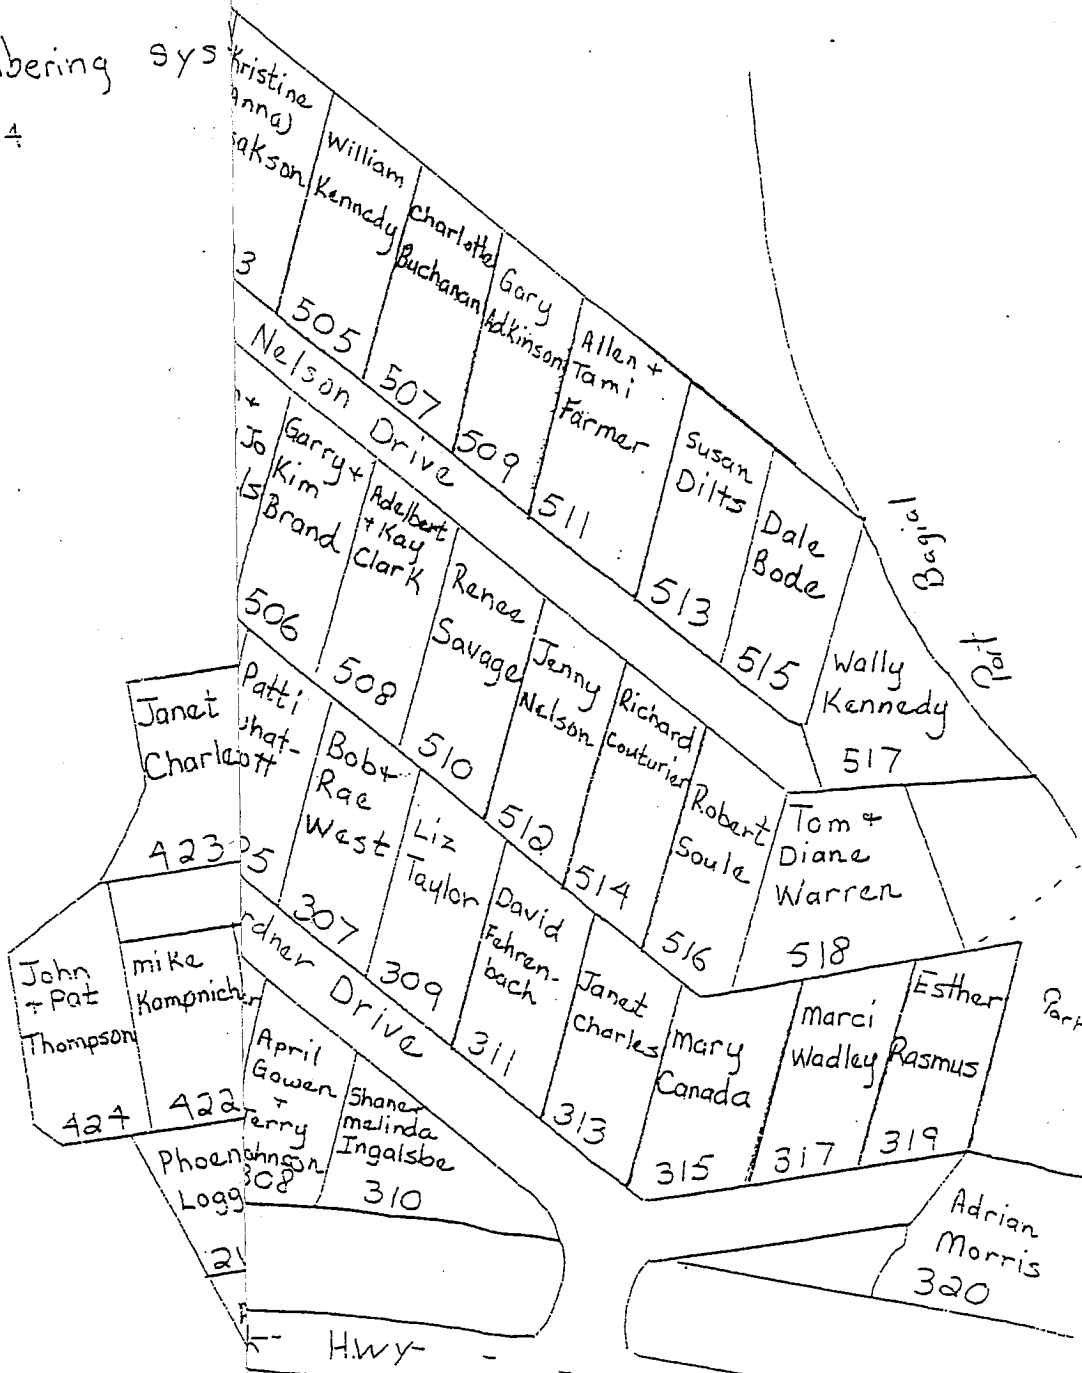 bering sys
4
Kristine
Anna)
akson
3
William
Kennedy
505
Charlotte
Buchanan
507
Gary
Adkinson
509
Allen +
Tami
Farmer
511
Susan
Dilts
513
Dale
Bode
515
Wally
Kennedy
517
Bagiel
Part
Nelson Drive
n +
Jo
ls
Garry +
Kim
Brand
506
Adelbert
+ Kay
Clark
508
Renee
Savage
510
Jenny
Nelson
512
Richard
Couturier
514
Robert
Soule
516
Tom +
Diane
Warren
518
Janet
Charle
423
Patti
hat-
ott
05
Bob +
Rae
West
307
Liz
Taylor
309
David
Fehren-
bach
311
Janet
Charles
313
Mary
Canada
315
Marci
Wadley
317
Esther
Rasmus
319
Part
rdner Drive
John
+ Pat
Thompson
424
mike
Kampnich
422
April
Gowen
+
Terry
ohnson
308
Shane +
melinda
Ingalsbe
310
Phoen
Logg
21
Adrian
Morris
320
k- H.WY-